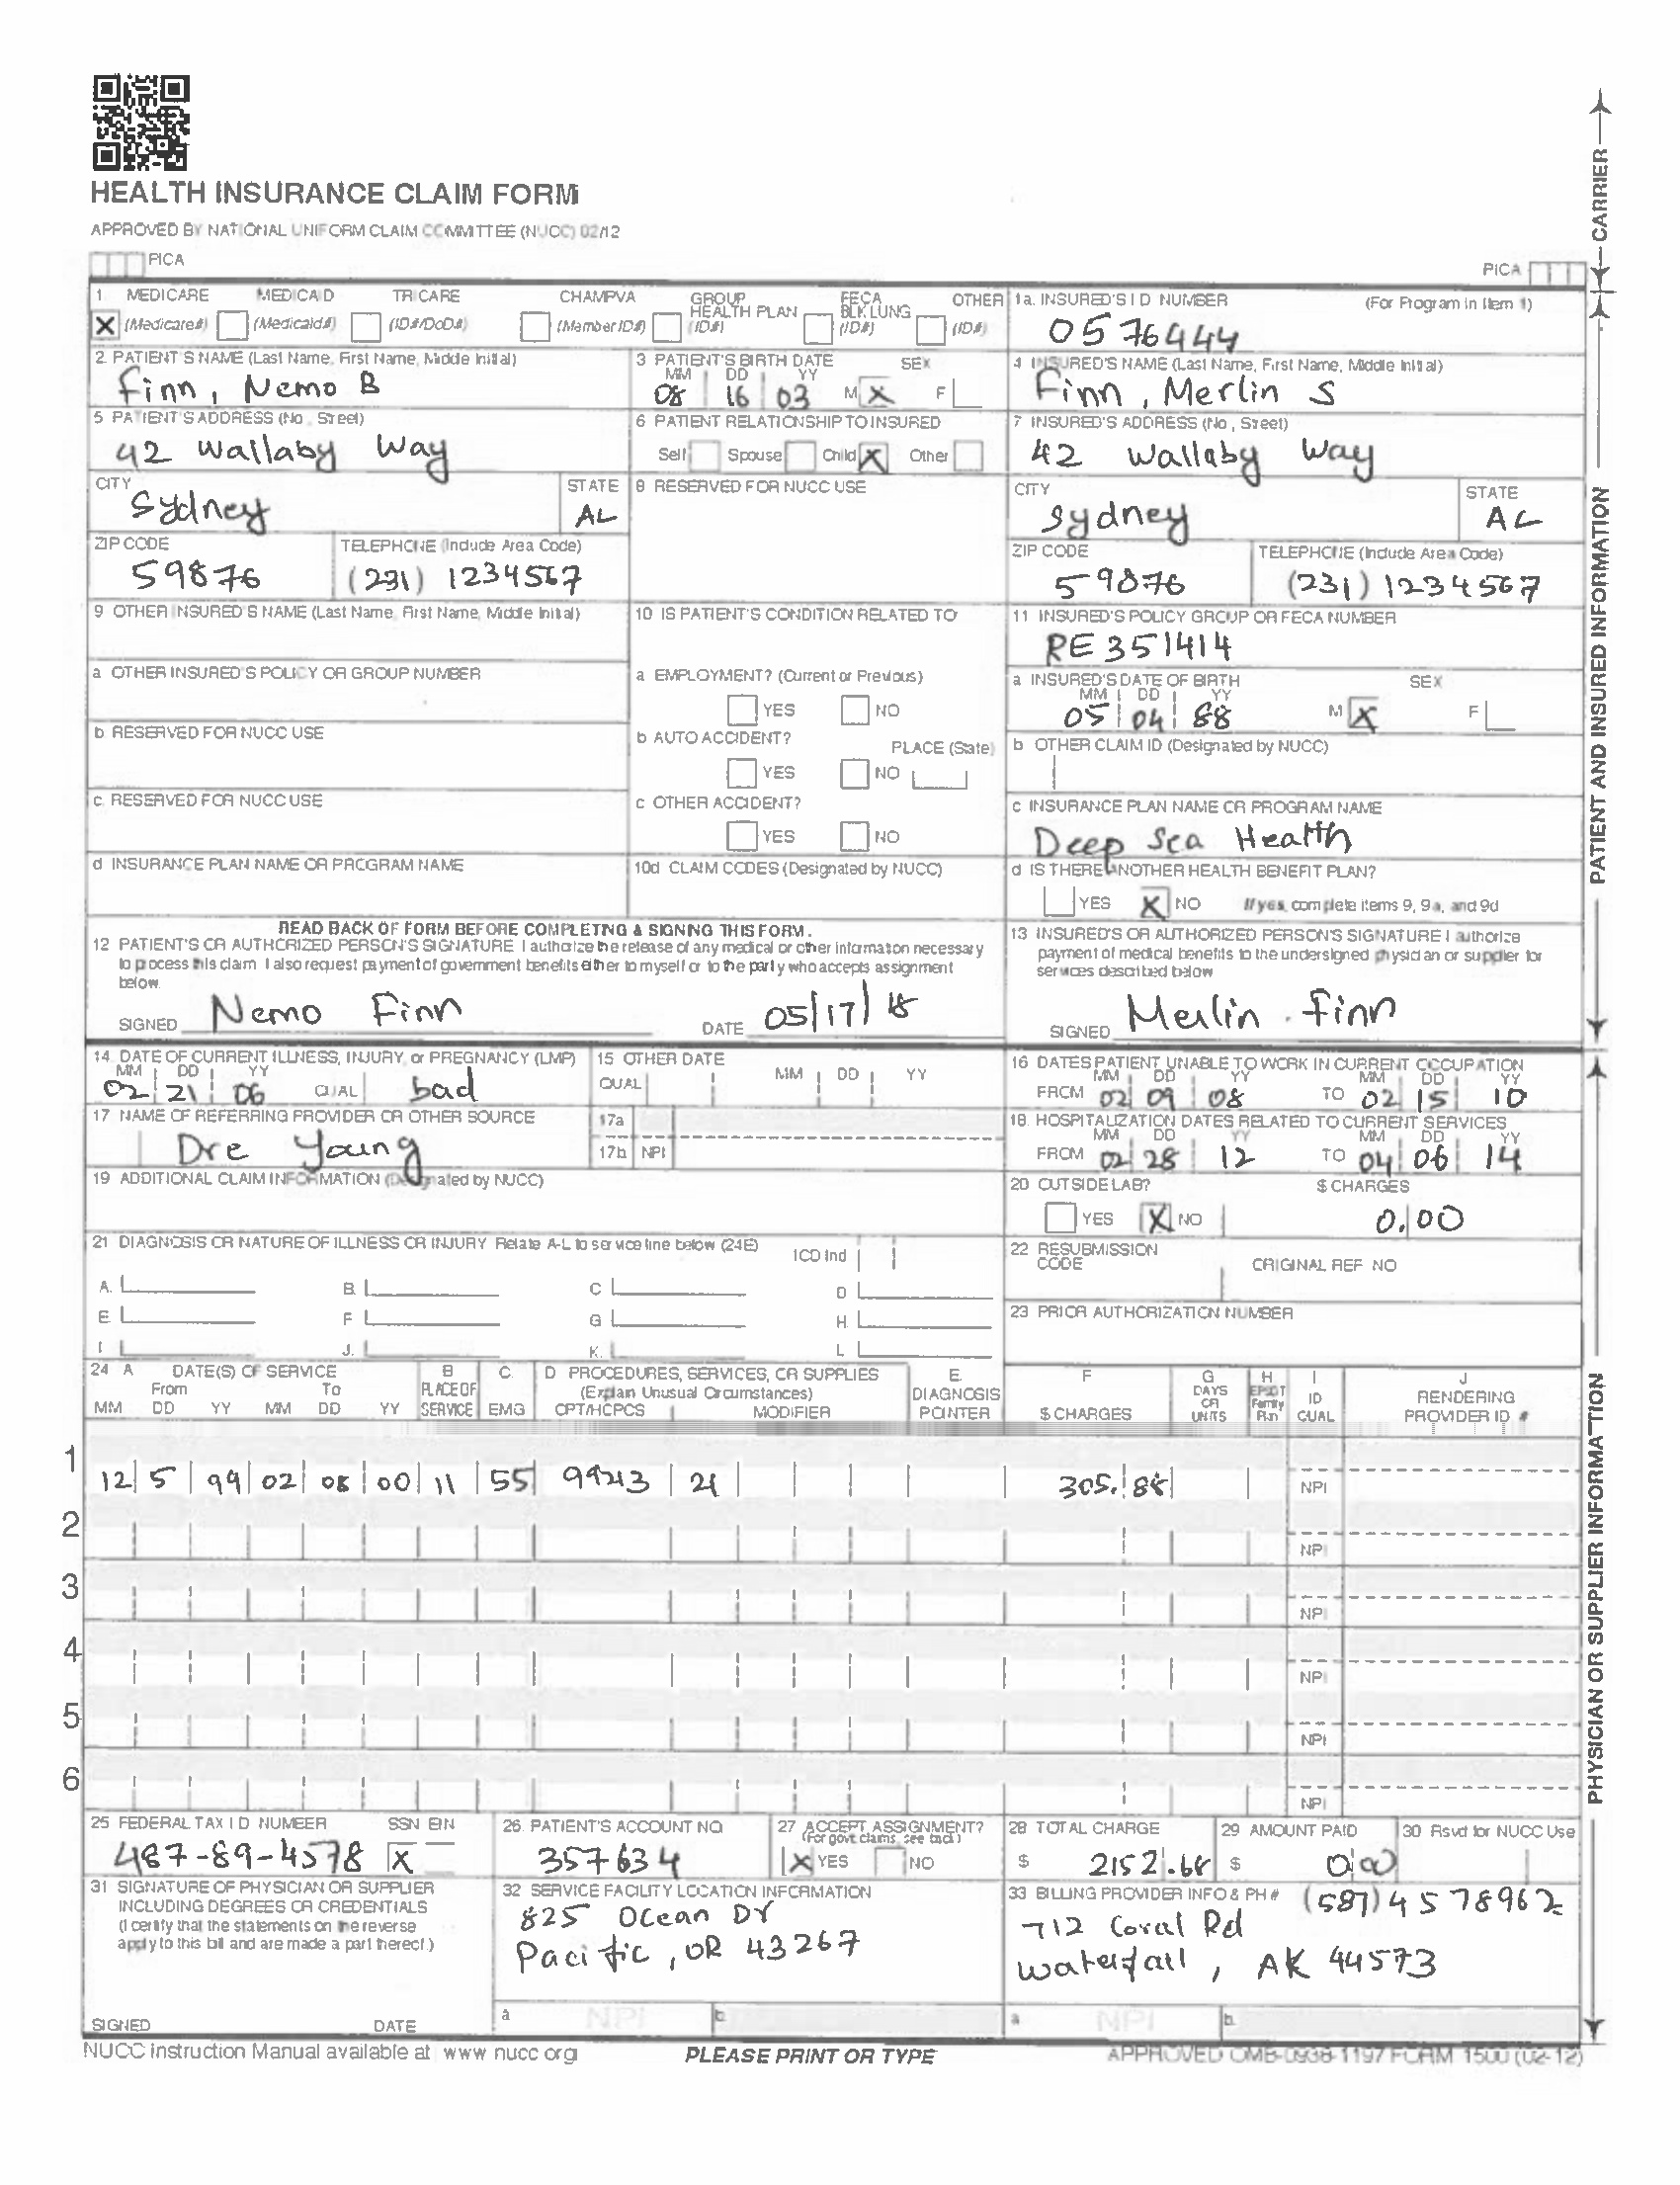 HEALTH INSURANCE CLAIM FORM
APPROVED BY NATIONAL UNIFORM CLAIM COMMITTEE (NUCC) 02/12
PICA
PICA
CARRIER
1 MEDICARE MEDICAID TRICARE CHAMPVA GROUP HEALTH PLAN FECA BLK LUNG OTHER
X (Medicare#) (Medicaid#) (ID#/DoD#) (Member ID#) (ID#) (ID#) (ID#)
1a. INSURED'S I D NUMBER (For Program in Item 1)
0576444
2. PATIENT'S NAME (Last Name, First Name, Middle Initial)
Finn, Nemo B
3 PATIENT'S BIRTH DATE SEX
MM DD YY
08 16 03 M X F
4 INSURED'S NAME (Last Name, First Name, Middle Initial)
Finn, Merlin S
5 PATIENT'S ADDRESS (No, Street)
42 Wallaby Way
6 PATIENT RELATIONSHIP TO INSURED
Self Spouse Child X Other
7 INSURED'S ADDRESS (No, Street)
42 Wallaby Way
CITY STATE
Sydney AL
8 RESERVED FOR NUCC USE
CITY STATE
Sydney AL
ZIP CODE TELEPHONE (Include Area Code)
59876 (231) 1234567
ZIP CODE TELEPHONE (Include Area Code)
59876 (231) 1234567
9 OTHER INSURED'S NAME (Last Name, First Name, Middle Initial)
10 IS PATIENT'S CONDITION RELATED TO
11 INSURED'S POLICY GROUP OR FECA NUMBER
RE 351414
a OTHER INSURED'S POLICY OR GROUP NUMBER
a EMPLOYMENT? (Current or Previous)
YES NO
a INSURED'S DATE OF BIRTH SEX
MM DD YY
05 04 88 M X F
b RESERVED FOR NUCC USE
b AUTO ACCIDENT? PLACE (State)
YES NO
b OTHER CLAIM ID (Designated by NUCC)
c. RESERVED FOR NUCC USE
c OTHER ACCIDENT?
YES NO
c INSURANCE PLAN NAME OR PROGRAM NAME
Deep Sea Health
d INSURANCE PLAN NAME OR PROGRAM NAME
10d CLAIM CODES (Designated by NUCC)
d IS THERE ANOTHER HEALTH BENEFIT PLAN?
YES X NO If yes, complete items 9, 9a, and 9d
READ BACK OF FORM BEFORE COMPLETING & SIGNING THIS FORM.
12 PATIENT'S OR AUTHORIZED PERSON'S SIGNATURE I authorize the release of any medical or other information necessary
to process this claim I also request payment of government benefits either to myself or to the party who accepts assignment
below
SIGNED Nemo Finn DATE 05/17/18
13 INSURED'S OR AUTHORIZED PERSON'S SIGNATURE I authorize
payment of medical benefits to the undersigned physician or supplier for
services described below
SIGNED Merlin . Finn
PATIENT AND INSURED INFORMATION
14. DATE OF CURRENT ILLNESS, INJURY, or PREGNANCY (LMP)
MM DD YY
02 21 06 QUAL bad
15 OTHER DATE
QUAL MM DD YY
16 DATES PATIENT UNABLE TO WORK IN CURRENT OCCUPATION
MM DD YY MM DD YY
FROM 02 09 08 TO 02 15 10
17 NAME OF REFERRING PROVIDER OR OTHER SOURCE
Dre Young
17a
17b NPI
18. HOSPITALIZATION DATES RELATED TO CURRENT SERVICES
MM DD YY MM DD YY
FROM 02 28 12 TO 04 06 14
19 ADDITIONAL CLAIM INFORMATION (Designated by NUCC)
20 OUTSIDE LAB? $ CHARGES
YES X NO 0.00
21 DIAGNOSIS OR NATURE OF ILLNESS OR INJURY Relate A-L to service line below (24E) ICD Ind
A. B. C D
E F G H.
I J. K. L
22 RESUBMISSION
CODE ORIGINAL REF NO
23 PRIOR AUTHORIZATION NUMBER
24 A DATE(S) OF SERVICE B C. D PROCEDURES, SERVICES, OR SUPPLIES E. F G H I J
From To PLACE OF (Explain Unusual Circumstances) DIAGNOSIS DAYS OR UNITS EPSDT Family Plan ID RENDERING
MM DD YY MM DD YY SERVICE EMG CPT/HCPCS MODIFIER POINTER $ CHARGES QUAL PROVIDER ID #
1
12 5 99 02 08 00 11 55 99213 21 305.88 NPI
2
NPI
3
NPI
4
NPI
5
NPI
6
NPI
25 FEDERAL TAX I D NUMBER SSN EIN
487-89-4578 X
26. PATIENT'S ACCOUNT NO
357634
27 ACCEPT ASSIGNMENT?
(For govt claims, see back)
X YES NO
28 TOTAL CHARGE
$ 2152.68
29 AMOUNT PAID
$ 0 00
30 Rsvd for NUCC Use
31 SIGNATURE OF PHYSICIAN OR SUPPLIER
INCLUDING DEGREES OR CREDENTIALS
(I certify that the statements on the reverse
apply to this bill and are made a part thereof.)
SIGNED DATE
32 SERVICE FACILITY LOCATION INFORMATION
825 Ocean Dr
Pacific, OR 43267
a NPI b.
33 BILLING PROVIDER INFO & PH # (587) 4578962
712 Coral Rd
Waterfall, AK 44573
a NPI b.
PHYSICIAN OR SUPPLIER INFORMATION
NUCC Instruction Manual available at www nucc org
PLEASE PRINT OR TYPE
APPROVED OMB-0938-1197 FORM 1500 (02-12)